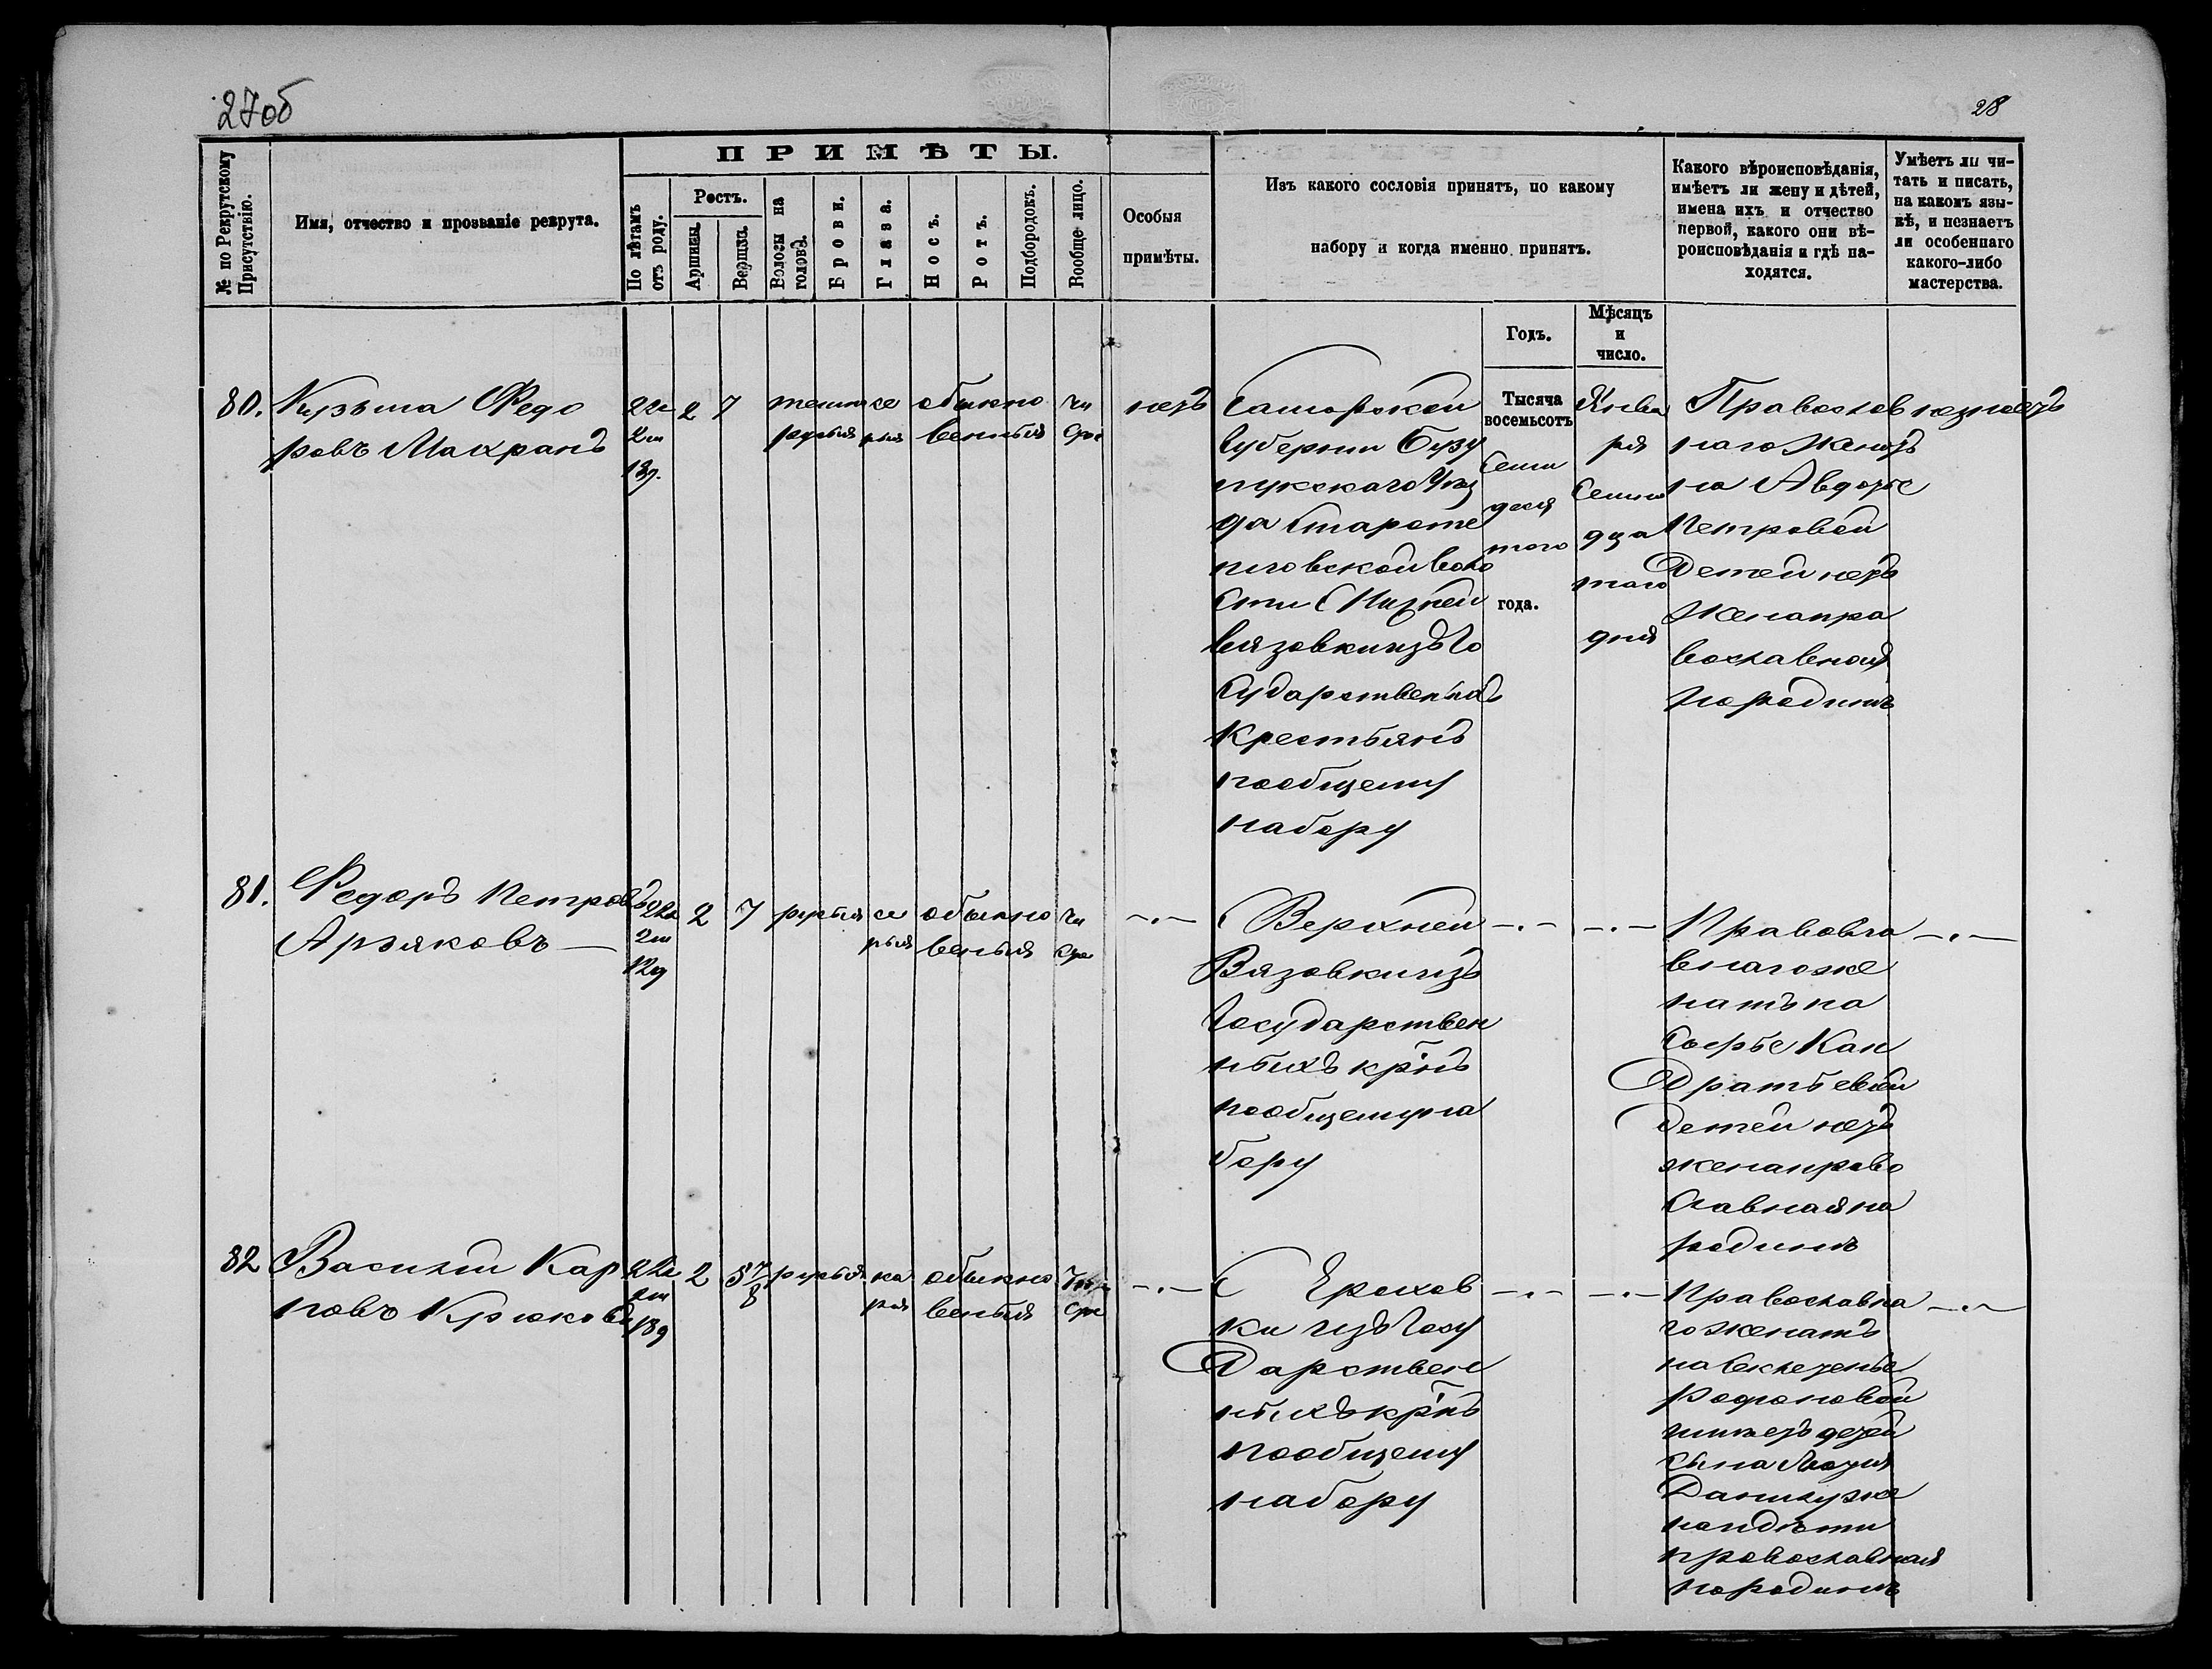 27об
28
ПРИМѢТЫ.
№ по Рекрутскому Присутствію.
Имя, отчество и прозваніе рекрута.
По лѣтамъ отъ роду.
Ростъ.
Аршины.
Вершки.
Волосы на головѣ.
Брови.
Глаза.
Носъ.
Ротъ.
Подбородокъ.
Вообще лицо.
Особыя
примѣты.
Изъ какого сословія принятъ, по какому
набору и когда именно принятъ.
Какого вѣроисповѣданія,
имѣетъ ли жену и дѣтей,
имена ихъ и отчество
первой, какого они вѣ-
роисповѣданія и гдѣ на-
ходятся.
Умѣетъ ли чи-
тать и писать,
на какомъ язы-
кѣ, и незнаетъ
ли особеннаго
какого-либо
мастерства.
Годъ.
Мѣсяцъ
и
число.
80.
Кузьма Федо
ровъ
22
2м
13д.
2
7
темно
русыя
се
рыя
обыкно
венныя
чи
стое
нетъ
Самарской
Губерніи Бузу
лукскаго Уез
да
ской воло
сти С Нижней
Вязовки изъ Го
сударственныхъ
Крестьянъ
по общему
набору
Тысяча
восемьсотъ
Семи
деся
того
года.
Янва
ря
Семна
дца
таго
дня
Православ
наго Женатъ
на Авдотье
Петровой
Детей нетъ
Жена пра
вославная
на родине
незнаетъ
81.
Федоръ Петровъ
Арзяковъ —
22
2м
12д
2
7
русыя
се
рыя
обыкно
венныя
чи
стое
-.-
С Верхней
Вязовки изъ
Государствен
ныхъ крнъ
по общему на
бору
-.-
-.-
Правосла
внаго же
натъ на
Софье Кан
дратьевой
Детей нетъ
жена право
славная на
родине
-.-
82
Василий Кар
повъ Крюковъ
22
2м
18д
2
5 7/8
русыя
ка
рия
обыкно
венныя
чи
стое
-.-
С Ерохов
ки изъ Госу
Дарствен
ныхъ крнъ
по общему
набору
-.-
-.-
Православна
го женатъ
на
Родионовой
имеетъ детей
сына
жена и дети
православная
на родине
-.-